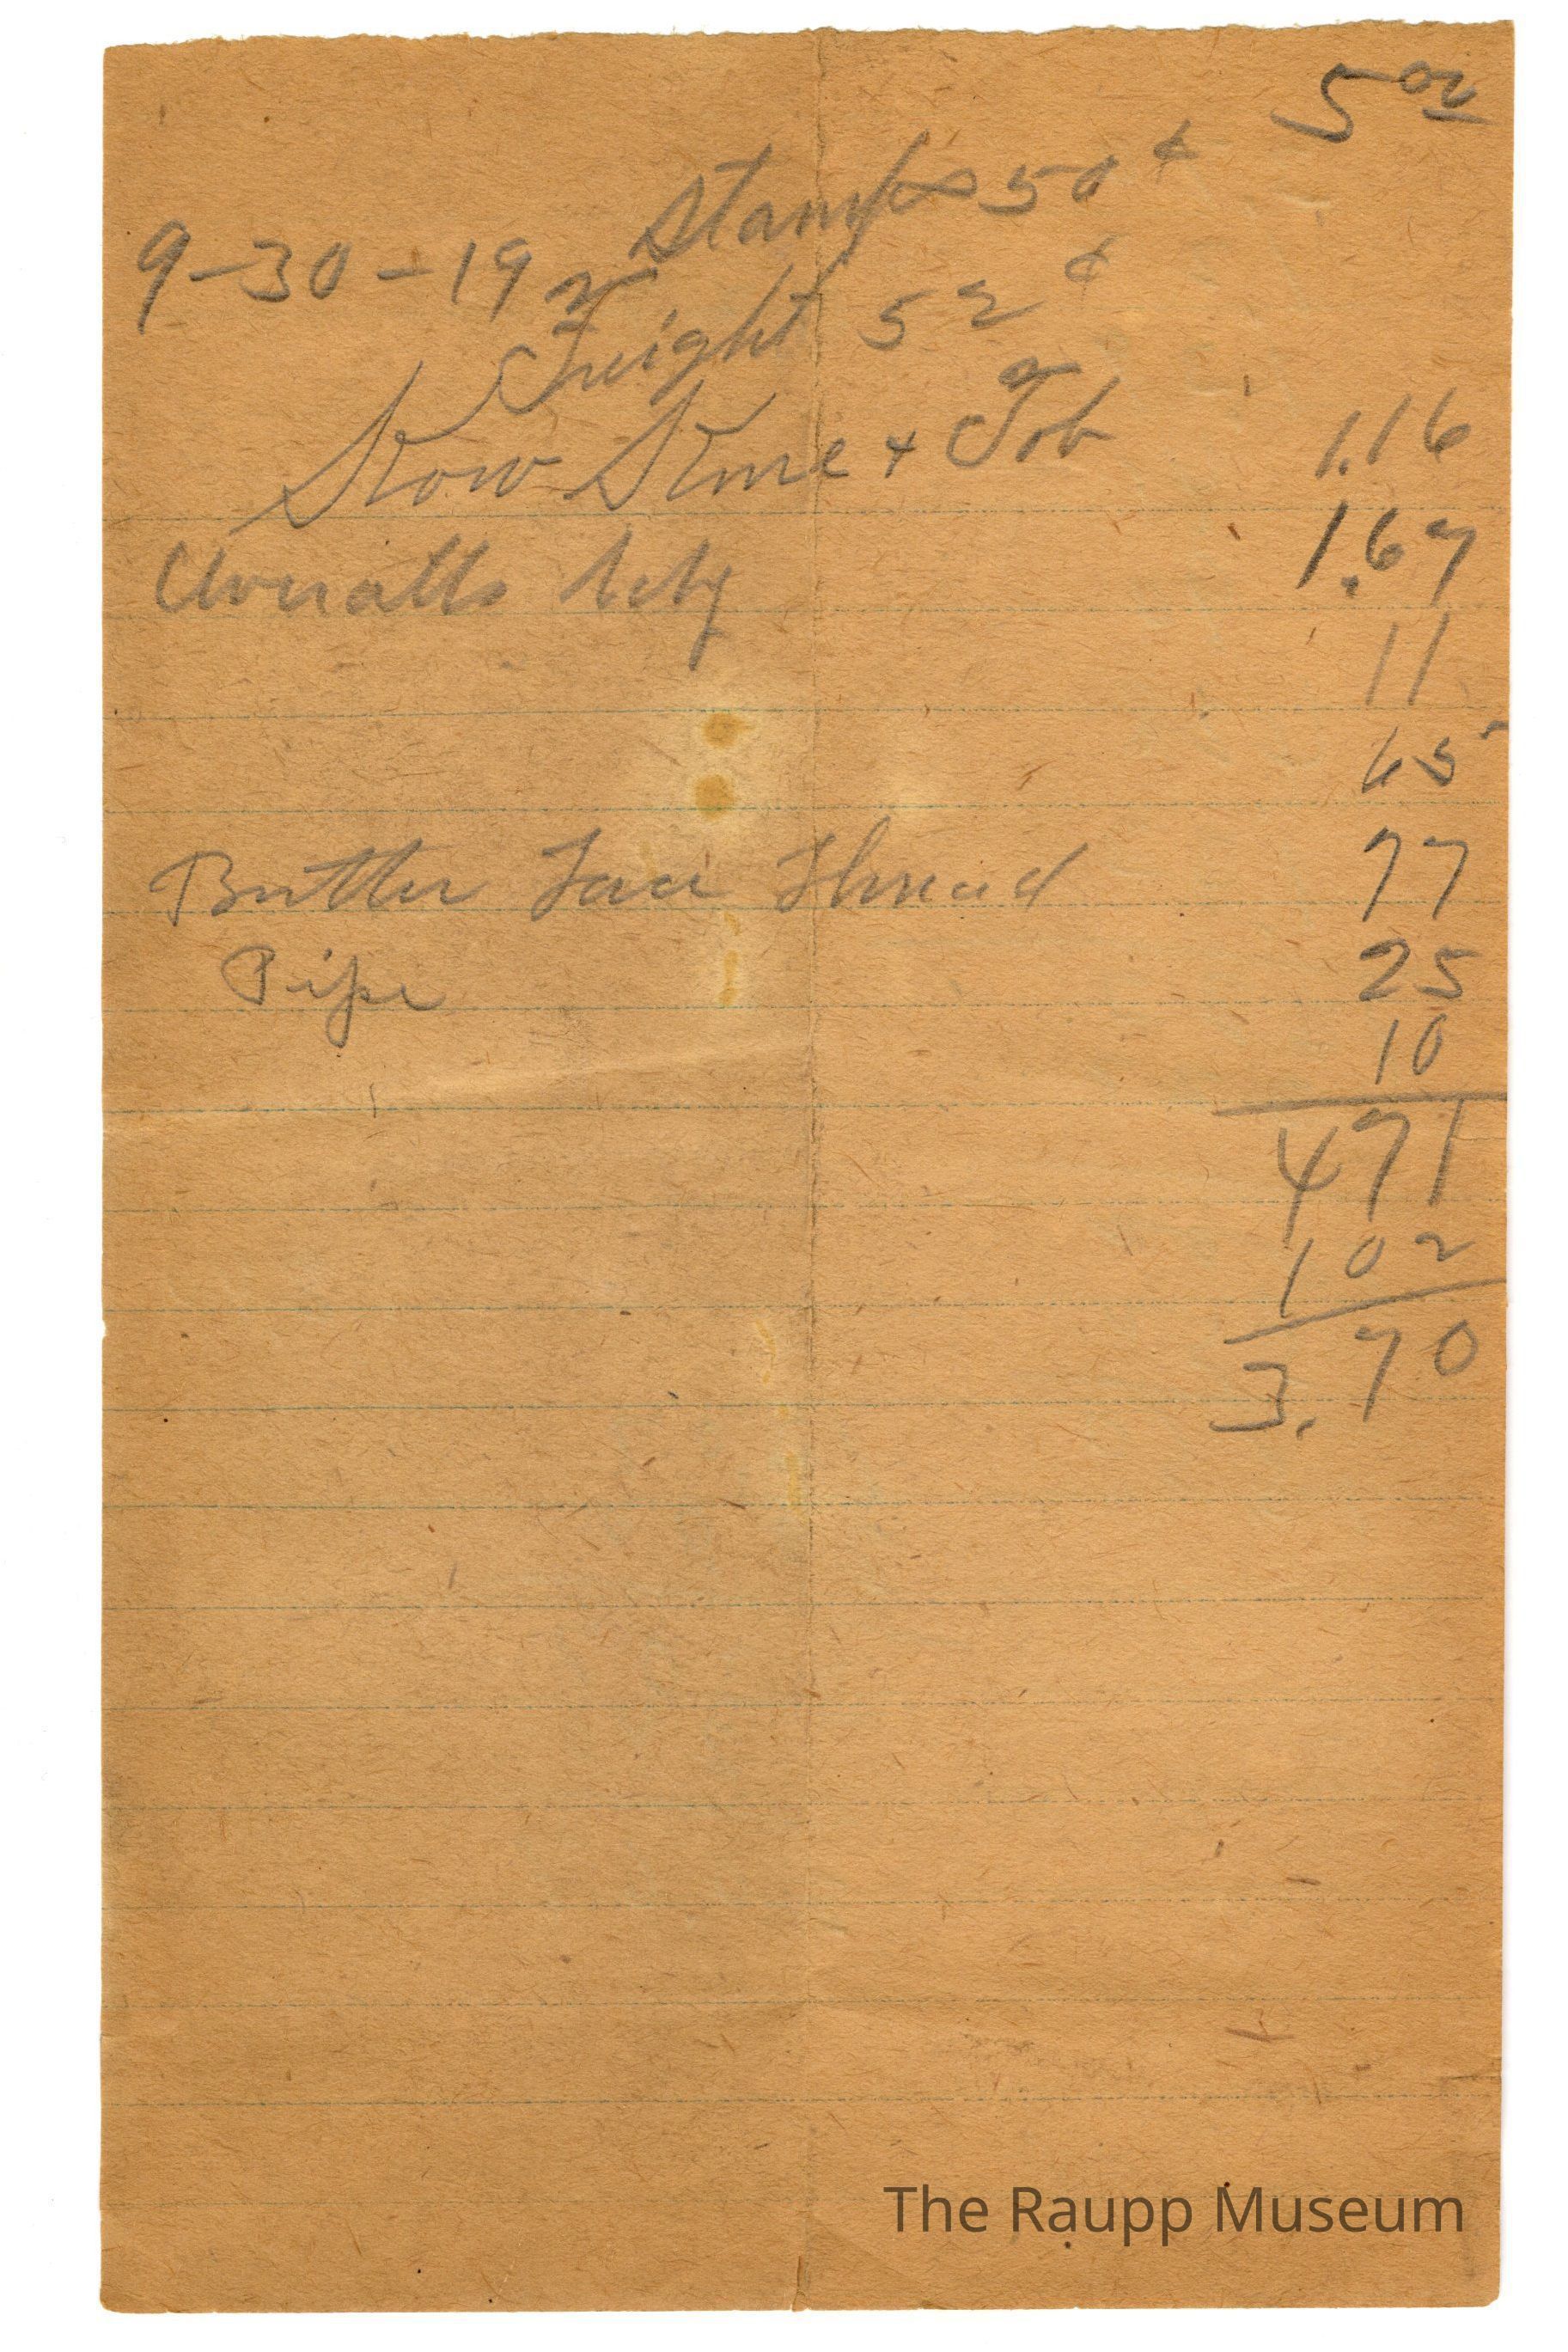 5 00
Stamps 50 ¢
9-30-19 2
Freight 52 ¢
& Tob 1.16
Overalls 1.67
11
65
Butter Thread 77
Pipe 25
10
471
102
3.70
The Raupp Museum